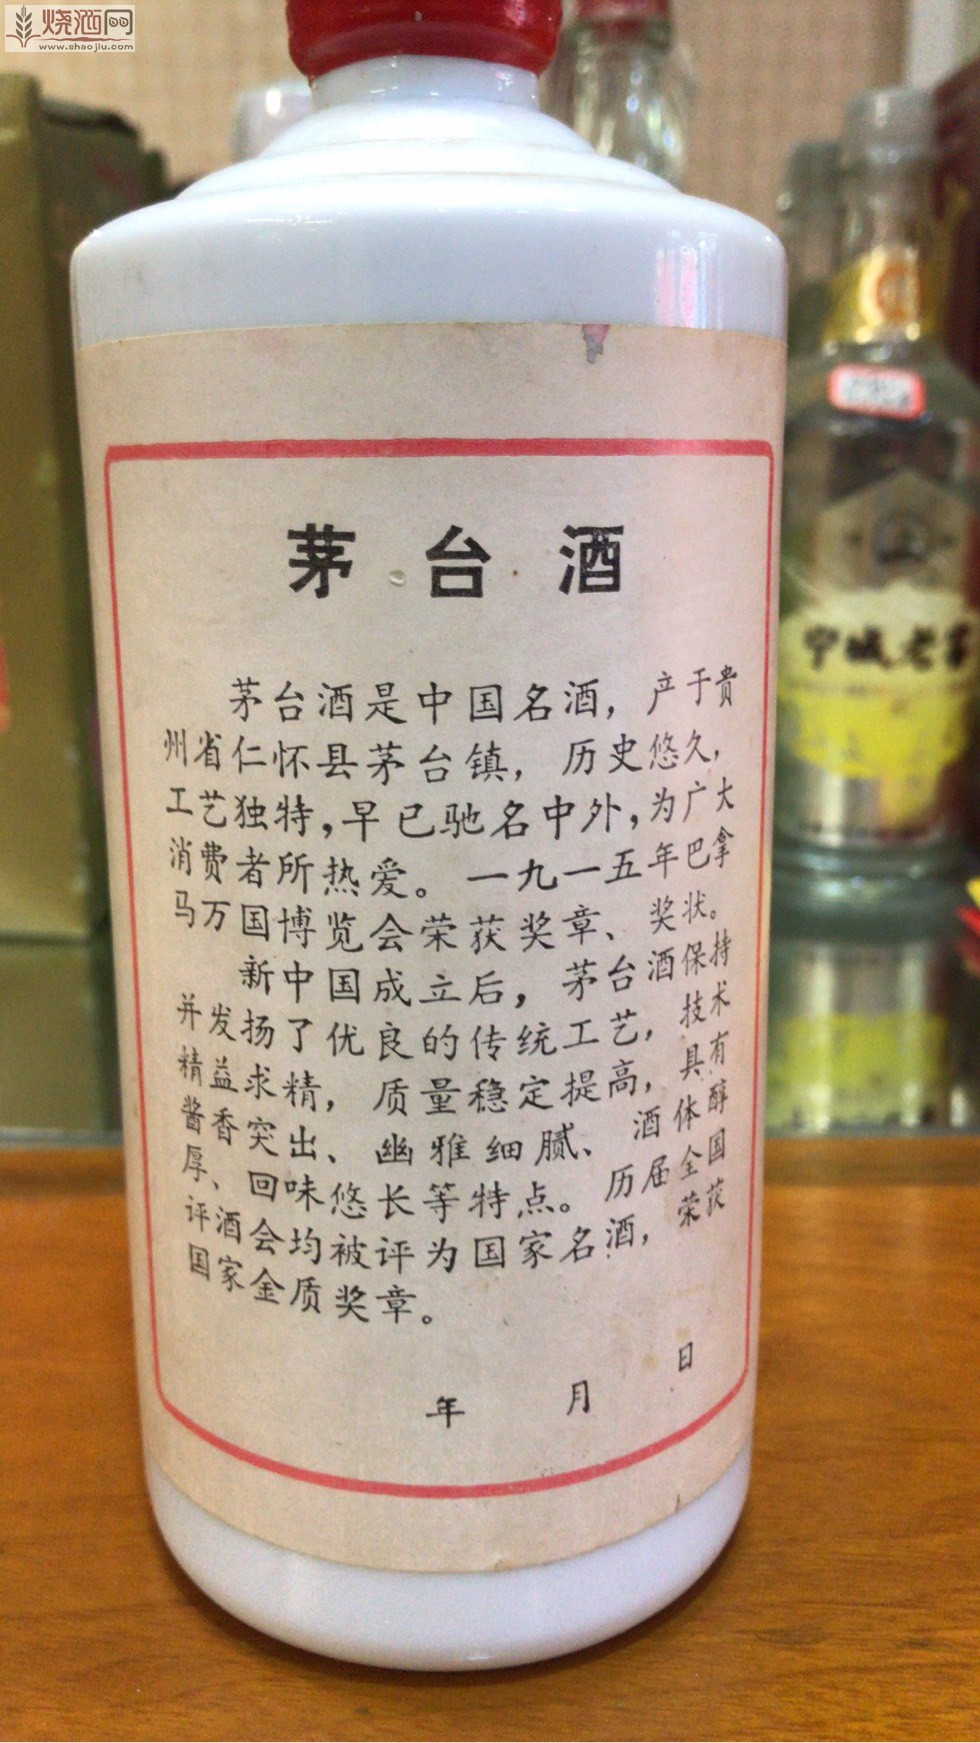 烧酒网
www.shaojiu.com
茅台酒
茅台酒是中国名酒，产于贵
州省仁怀县茅台镇，历史悠久，
工艺独特，早已驰名中外，为广大
消费者所热爱。一九一五年巴拿
马万国博览会荣获奖章、奖状。
新中国成立后，茅台酒保持
并发扬了优良的传统工艺，技术
精益求精，质量稳定提高，具有
酱香突出、幽雅细腻、酒体醇
厚、回味悠长等特点。历届全国
评酒会均被评为国家名酒，荣获
国家金质奖章。
年 月 日
宁城老窖